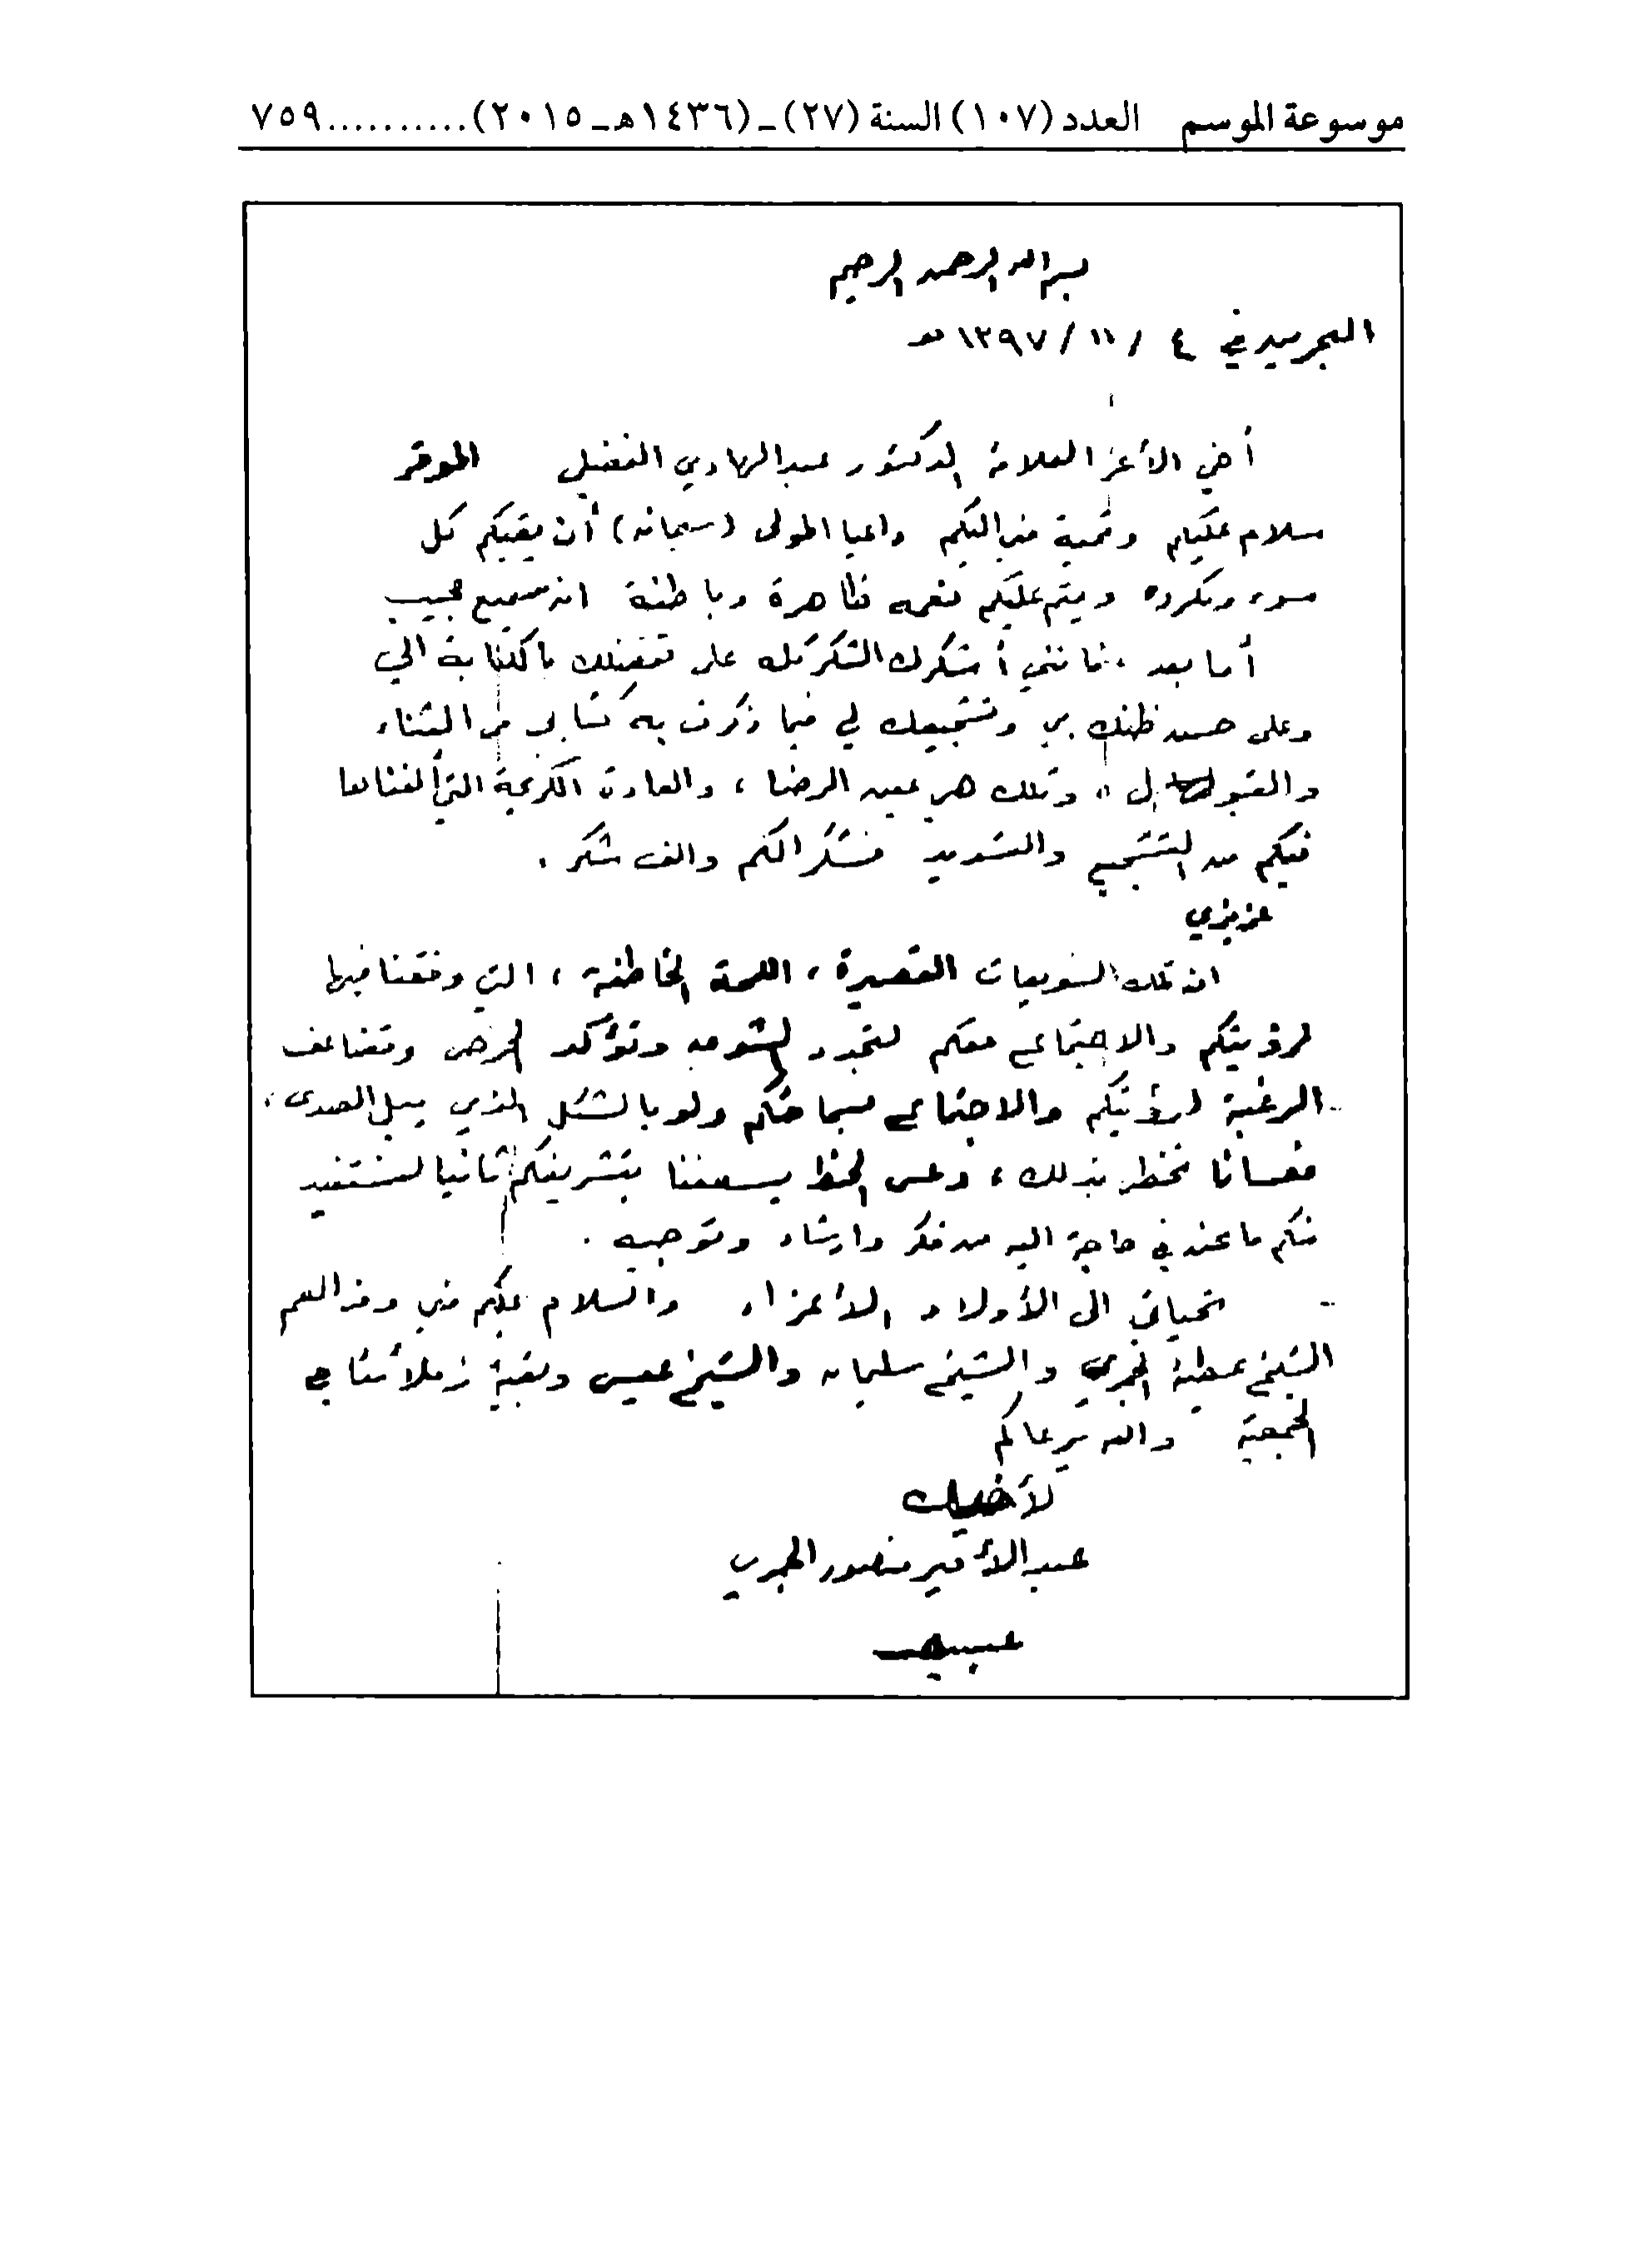 موسوعة الموسم العدد (١٠٧) السنة (٢٧) ـ (١٤٣٦هـ ـ ٢٠١٥) .......... ٧٥٩
بسم الله الرحمن الرحيم
البحرين في ٤ / ١١ / ١٣٩٧ هـ
أخي الأعز العلامة الدكتور عبدالهادي الفضلي الموقر
سلام عليكم وتحية مني اليكم داعيا المولى (سبحانه) أن يقيكم كل
سوء ومكروه ويتم عليكم نعمه ظاهرة وباطنة انه سميع مجيب
أما بعد ، فانني أشكرك الشكر كله على تفضلك بالكتابة الي
وعلى حسن ظنك بي وتشجيعك لي فيما ذكرت به كتابي من الثناء
والقبول ، وتلك هي عين الرضا ، والعادة الكريمة التي ألفناها
فيكم من التشجيع والتسديد فشكرا لكم والف شكر .
عزيزي
ان تلك السويعات القصيرة ، اللمحة الخاطفة ، التي وفقنا فيها
لرؤيتكم والاجتماع معكم لتجدد الشوق وتؤكد الحرص وتضاعف
الرغبة لرؤيتكم والاجتماع بسماحتكم ولو بالشكل الذي يبل الصدى ،
فعسانا نحظى بذلك ، وعسى الحظ يسعفنا بتشريفكم ثانيا لنستفيد
منكم ما نحن في حاجة اليه من فكر وارشاد وتوجيه .
تحياتي الى الأولاد الأعزاء والسلام عليكم مني ومن العم
الشيخ عطية الجمري والشيخ سليمان والشيخ عيسى وبقية زملائنا في
الجمعية والله يرعاكم
لأخيك
عبد الأمير منصور الجمري